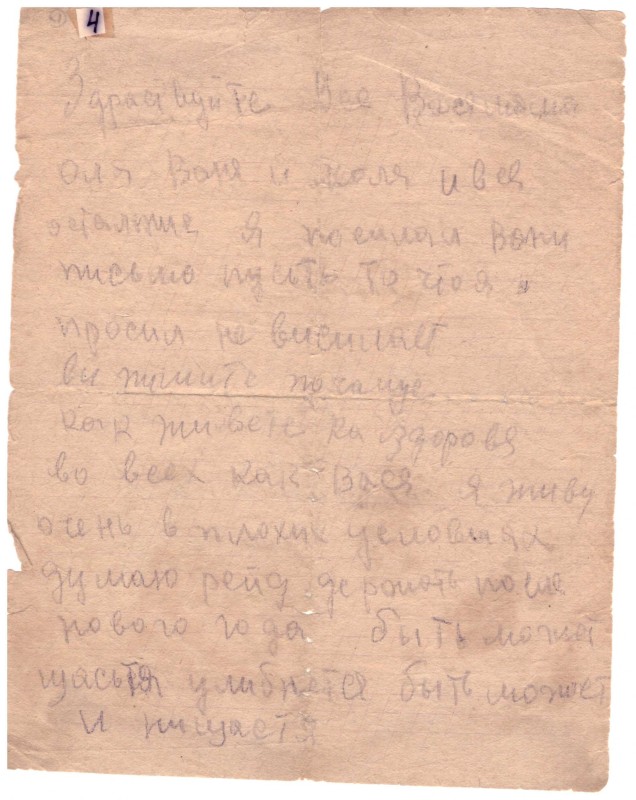 4
Здраствуйте Все Вася мама
оля Ваня и коля и вся
осталние я посилал Вани
письмо пусть то что я
просил не висилает
ви пишите почаще.
как живете ка здоровя
во всех как Вася. я живу
очень в плохих условиях
думаю рейд держать после
нового года быть может
щастя улибнется быть может
и нищастя